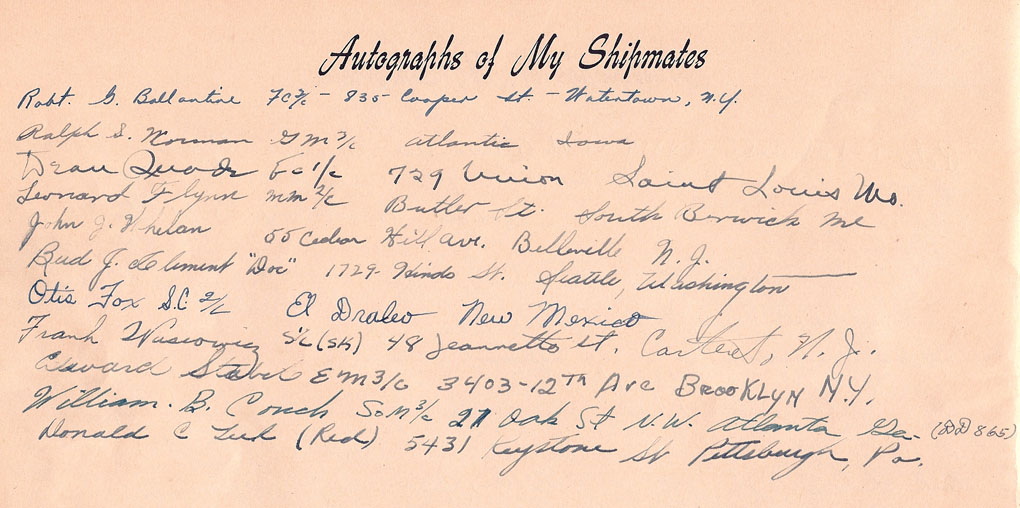 Autographs of My Shipmates
Robt. G. Ballantine FC 3/c - 835 Cooper St. - Watertown, N.Y.
Ralph S. Norman GM 3/c Atlantic Iowa
Dean Fc 1/c 729 Union Saint Louis Mo.
Leonard Flynn MM 2/c Butler St. South Berwick Me
John J. Whelan 55 Cedar Hill Ave. Belleville N. J.
Bud J. Clement "Doc" 1729 Hinds St. Seattle, Washington
Otis Fox S.C 2/c El New Mexico
Frank S1/c (SK) 48 Jeannette St. Carteret, N. J.
Edward Stabel EM3/c 3403-12TH Ave BROOKLYN N.Y.
William. B. Couch SoM 3/c 27 Oak St N.W. Atlanta, Ga. (DD 865)
Donald C (Red) 5431 Keystone St Pittsburgh, Pa.